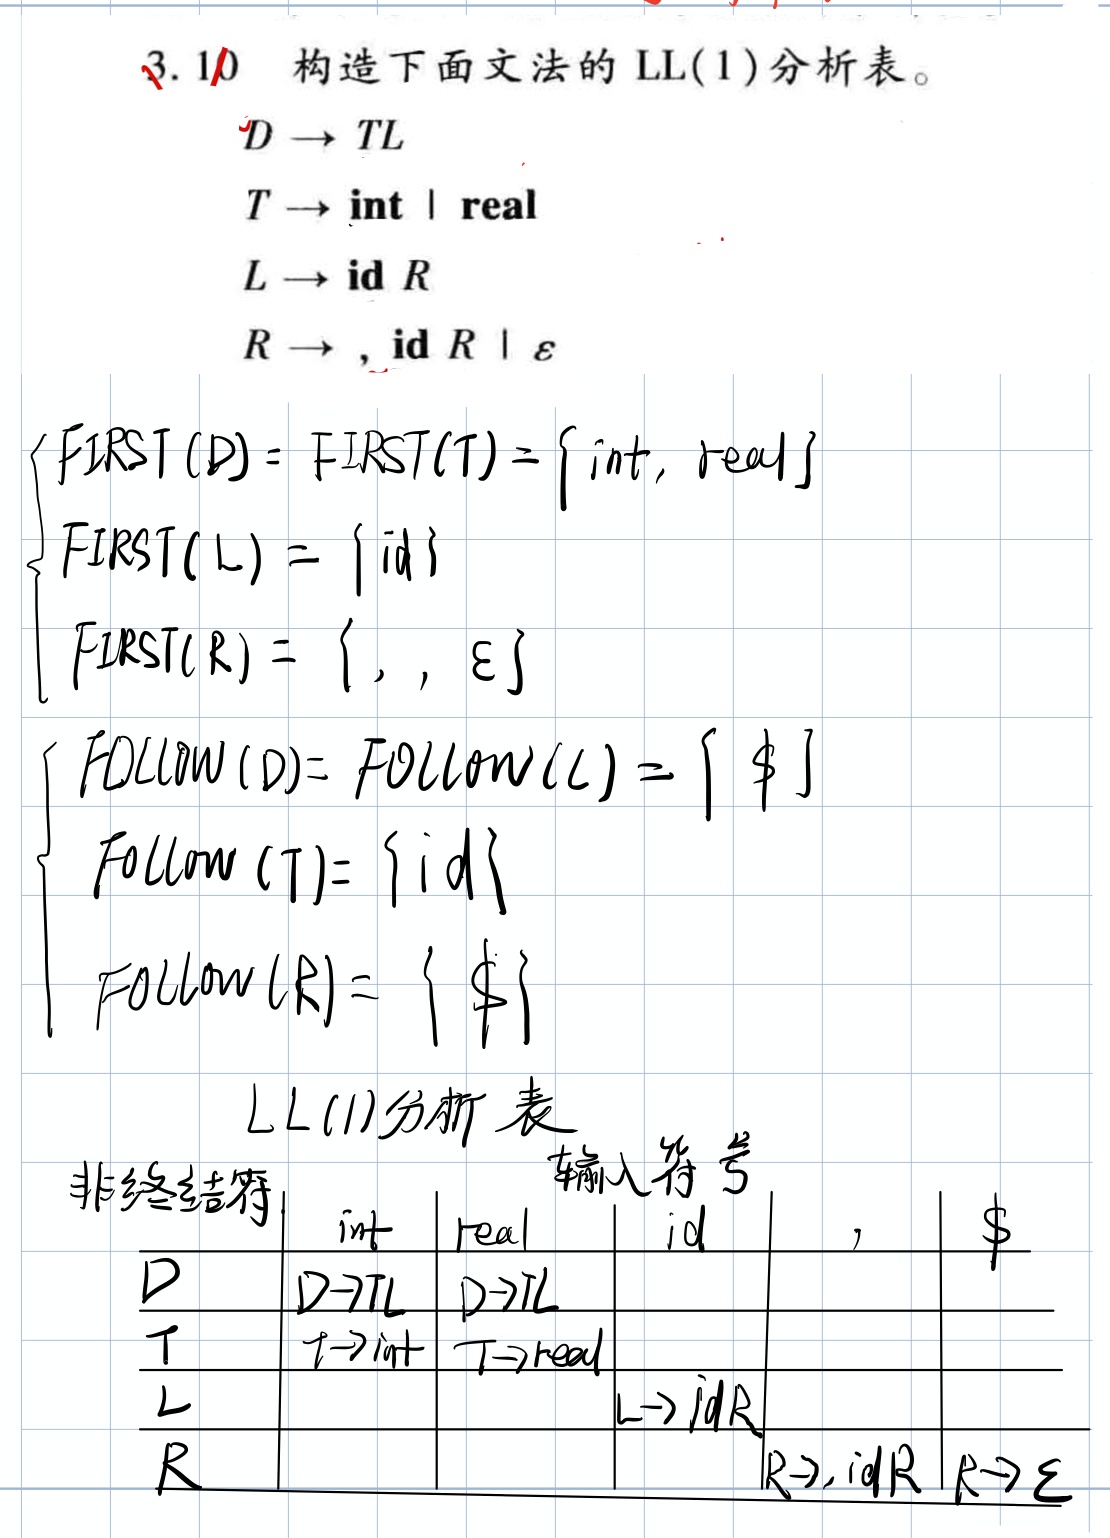 3.10 构造下面文法的 LL(1)分析表。
D → TL
T → int | real
L → id R
R → , id R | ε
FIRST(D) = FIRST(T) = {int, real}
FIRST(L) = {id}
FIRST(R) = {, , ε}
FOLLOW(D) = FOLLOW(L) = {$}
FOLLOW(T) = {id}
FOLLOW(R) = {$}
LL(1)分析表
非终结符 输入符号
int real id , $
D D→TL D→TL
T T→int T→real
L L→idR
R R→,idR R→ε